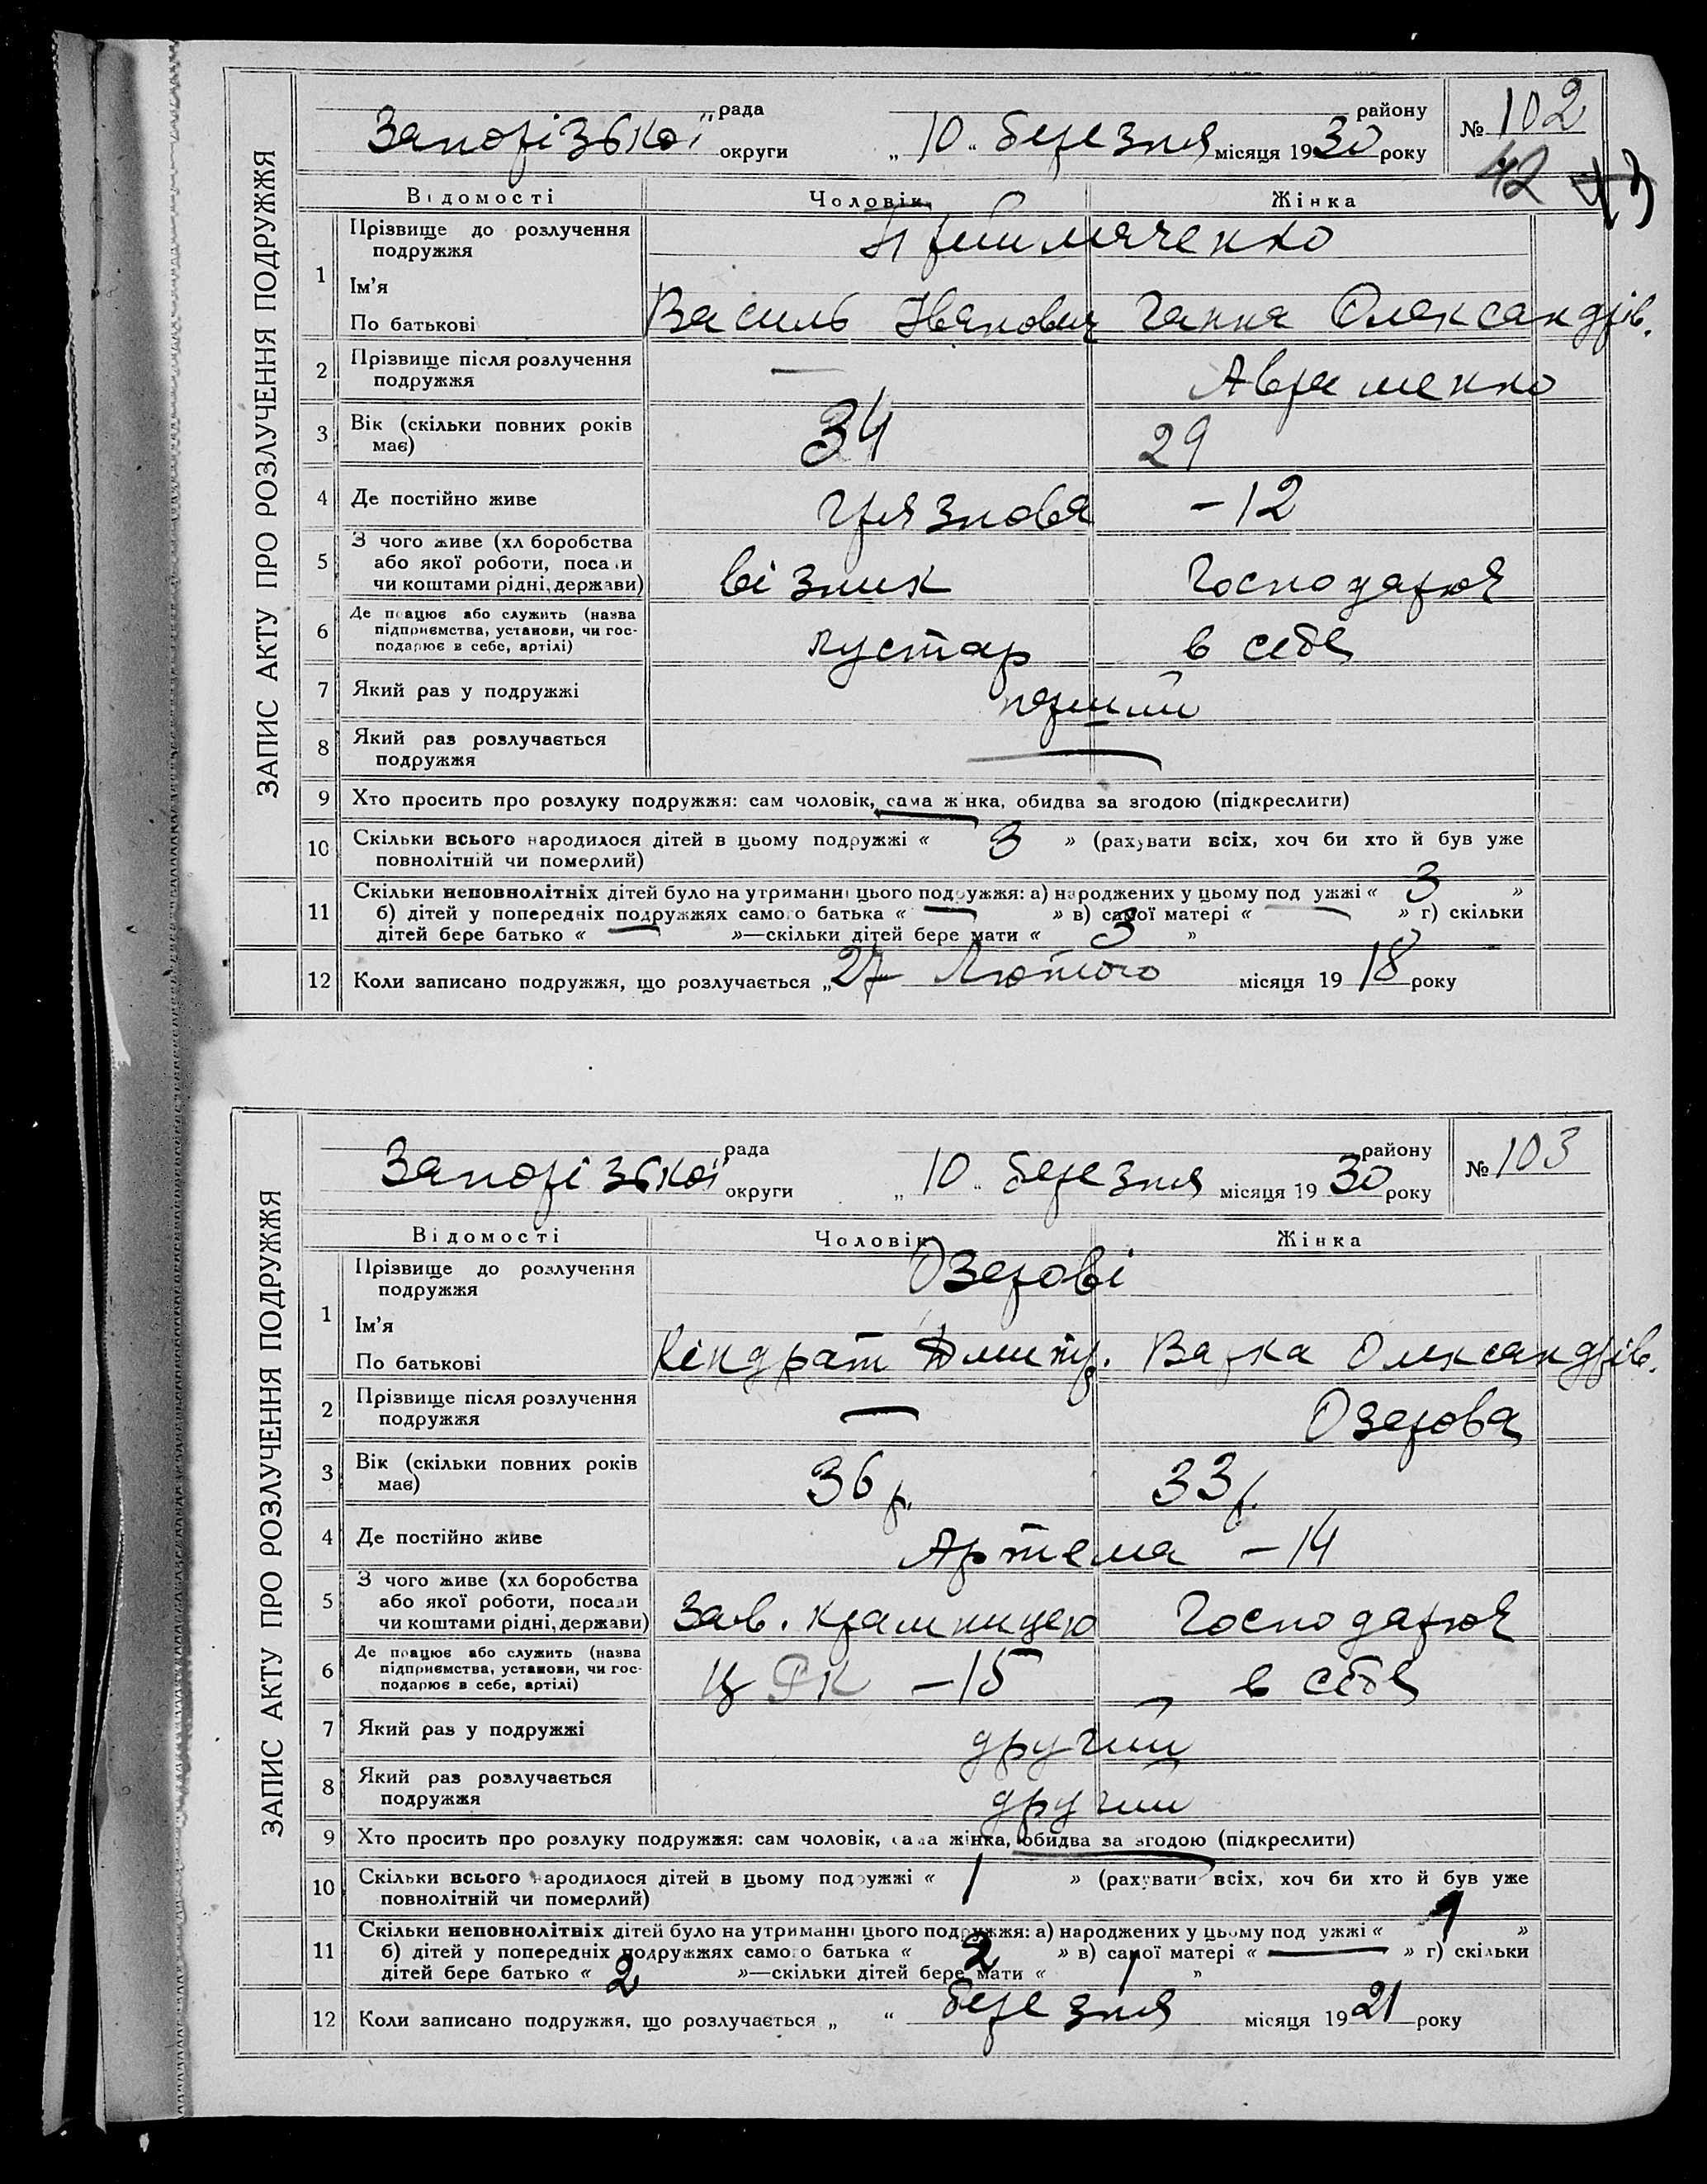 ЗАПИС АКТУ ПРО РОЗЛУЧЕННЯ ПОДРУЖЖЯ
рада району
Запорізької округи „10“ березня місяця 1930 року № 102
42
Відомості Чоловік Жінка
1 Прізвище до розлучення
подружжя
Ім'я
По батькові Василь Іванович Ганна Олександрів.
2 Прізвище після розлучення
подружжя — Авраменко
3 Вік (скільки повних років
має) 34 29
4 Де постійно живе Грязнова - 12
5 З чого живе (хліборобства
або якої роботи, посади
чи коштами рідні, держави) візник Господарює
6 Де працює або служить (назва
підприємства, установи, чи гос-
подарює в себе, артілі) кустар в себе
7 Який раз у подружжі перший
8 Який раз розлучається
подружжя —
9 Хто просить про розлуку подружжя: сам чоловік, сама жінка, обидва за згодою (підкреслити)
10 Скільки всього народилося дітей в цьому подружжі « 3 » (рахувати всіх, хоч би хто й був уже
повнолітній чи померлий)
11 Скільки неповнолітніх дітей було на утриманні цього подружжя: а) народжених у цьому подружжі « 3 »
б) дітей у попередніх подружжях самого батька « — » в) самої матері « — » г) скільки
дітей бере батько « — »—скільки дітей бере мати « 3 »
12 Коли записано подружжя, що розлучається „27 Лютого місяця 1918 року
ЗАПИС АКТУ ПРО РОЗЛУЧЕННЯ ПОДРУЖЖЯ
рада району
Запорізької округи „10“ березня місяця 1930 року № 103
Відомості Чоловік Жінка
1 Прізвище до розлучення
подружжя Озерові
Ім'я
По батькові Кіндрат Дмитр. Варка Олександрів.
2 Прізвище після розлучення
подружжя — Озерова
3 Вік (скільки повних років
має) 36 р. 33 р.
4 Де постійно живе Артема - 14
5 З чого живе (хліборобства
або якої роботи, посади
чи коштами рідні, держави) Зав. крамницею Господарює
6 Де працює або служить (назва
підприємства, установи, чи гос-
подарює в себе, артілі) ЦРК - 15 в себе
7 Який раз у подружжі другий
8 Який раз розлучається
подружжя другий
9 Хто просить про розлуку подружжя: сам чоловік, сама жінка, обидва за згодою (підкреслити)
10 Скільки всього народилося дітей в цьому подружжі « 1 » (рахувати всіх, хоч би хто й був уже
повнолітній чи померлий)
11 Скільки неповнолітніх дітей було на утриманні цього подружжя: а) народжених у цьому подружжі « 1 »
б) дітей у попередніх подружжях самого батька « 2 » в) самої матері « — » г) скільки
дітей бере батько « 2 »—скільки дітей бере мати « 1 »
12 Коли записано подружжя, що розлучається „ “ березня місяця 1921 року